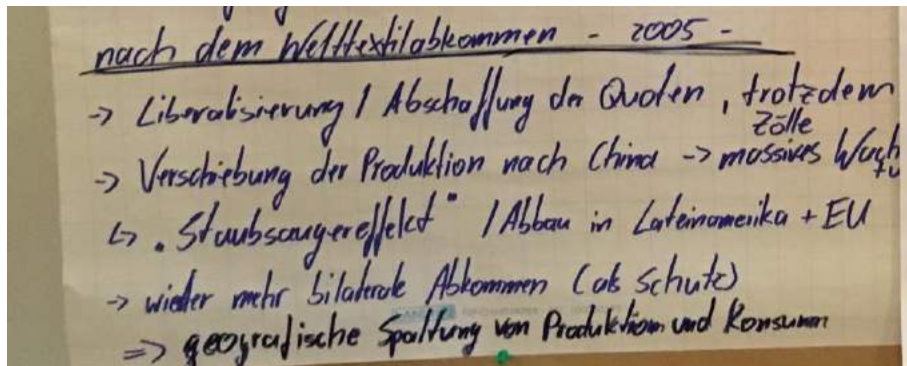 nach dem Welttextilabkommen - 2005 -
-> Liberalisierung / Abschaffung der Quoten, trotzdem
Zölle
-> Verschiebung der Produktion nach China -> massives Wach
tu
↳ "Staubsaugereffekt" / Abbau in Lateinamerika + EU
-> wieder mehr bilaterale Abkommen (als Schutz)
=> geografische Spaltung von Produktion und Konsum